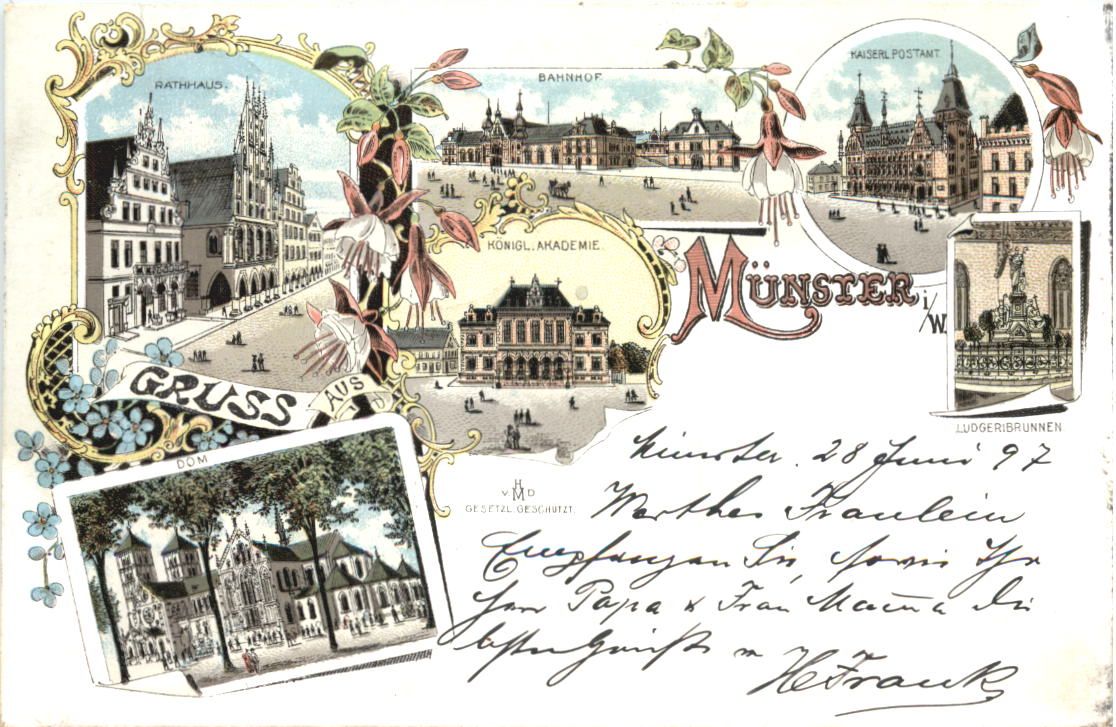 RATHHAUS.
BAHNHOF.
KAISERL. POSTAMT.
KÖNIGL. AKADEMIE.
MÜNSTER i/W.
GRUSS AUS
LUDGERIBRUNNEN.
DOM
H
V. M D
GESETZL. GESCHÜTZT.
Münster. 28 Juni 97
Werthes Fraulein
Empfangen Sie, sowie Ihr
Herr Papa & Frau Mama die
besten Grüße v
H Frank